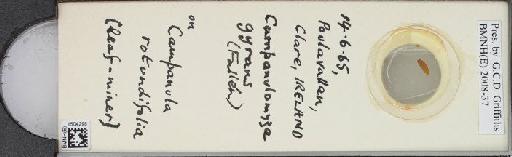 14.6.65,
Poulavallan,
Clare, IRELAND
Campanulomyza
gyrans
(Fallén)
on
Campanula
rotundifolia
(leaf-miner)
Pres. by G.C.D. Griffiths
BMNH(E) 2008-37